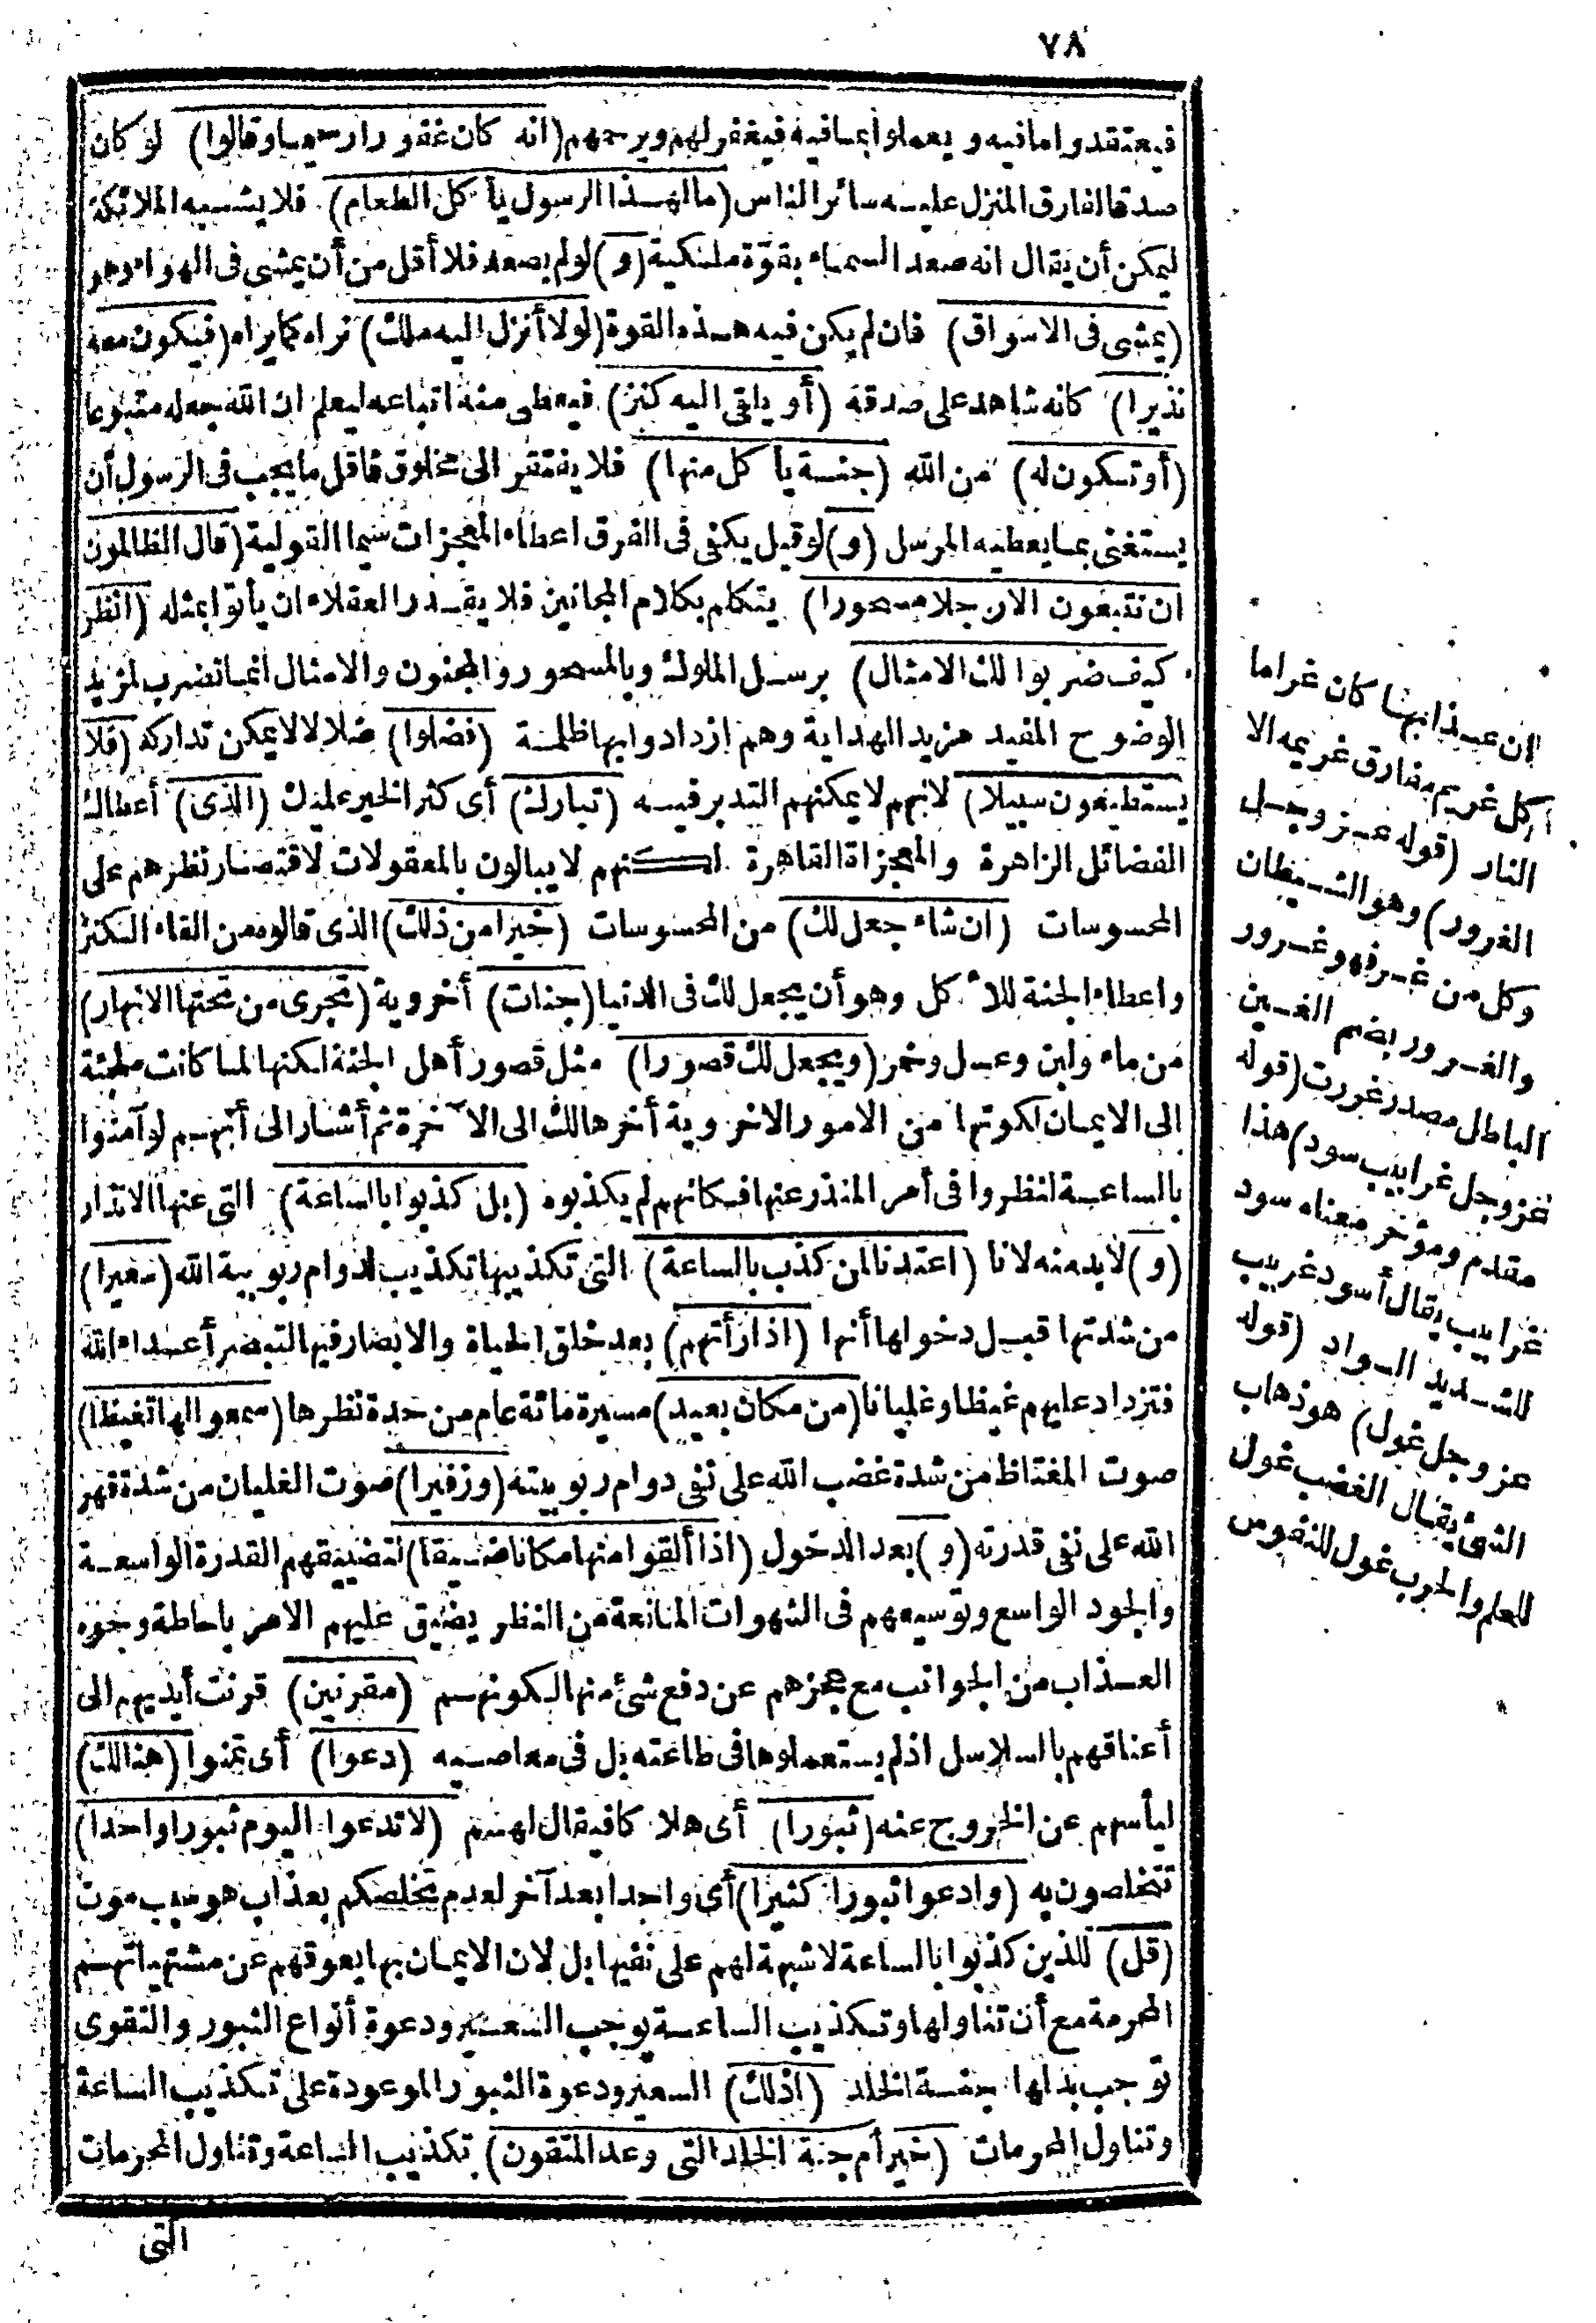 ٧٨
فيعتقدوا ما فيه ويعملوا بما فيه فيغفر لهم ويرحمهم (انه كان غفورا رحيما وقالوا) لو كان
صدقا لفارق المنزل عليه سائر الناس (مالهذا الرسول يأكل الطعام) فلا يشبه الملائكة
ليمكن أن يقال انه صعد السماء بقوة ملكية (و) لو لم يصعد فلا أقل من أن يمشى فى الهواء وهو
(يمشى فى الاسواق) فان لم يكن فيه هذه القوة (لولا أنزل اليه ملك) نراه كما يراه (فيكون معه
نذيرا) كانه شاهد على صدقه (أو يلقى اليه كنز) فيعطى منه اتباعه ليعلم ان الله جعله متبوعا
(أو تكون له) من الله (جنة يأكل منها) فلا يفتقر الى مخلوق فاقل ما يجب فى الرسول أن
يستغنى بما يعطيه المرسل (و) لو قيل يكفى فى الفرق اعطاء المعجزات سيما القولية (قال الظالمون
ان تتبعون الا رجلا مسحورا) يتكلم بكلام المجانين فلا يقدر العقلاء ان يأتوا بمثله (انظر
كيف ضربوا لك الامثال) برسل الملوك وبالمسحور والمجنون والامثال انما تضرب لمزيد
الوضوح المفيد مزيد الهداية وهم ازدادوا بها ظلمة (فضلوا) ضلالا لا يمكن تداركه (فلا
يستطيعون سبيلا) لانهم لا يمكنهم التدبر فيه (تبارك) أى كثر الخير عليك (الذى) أعطاك
الفضائل الزاهرة والمعجزاة القاهرة لكنهم لا يبالون بالمعقولات لاقتصار نظرهم على
المحسوسات (ان شاء جعل لك) من المحسوسات (خيرا من ذلك) الذى قالوه من القاء الكنز
واعطاء الجنة للاكل وهو أن يجعل لك فى الدنيا (جنات) أخروية (تجرى من تحتها الانهار)
من ماء ولبن وعسل وخمر (ويجعل لك قصورا) مثل قصور أهل الجنة لكنها لما كانت ملجئة
الى الايمان لكونها من الامور الاخروية أخرها لك الى الآخرة ثم أشار الى أنهم لو آمنوا
بالساعة لنظروا فى أمر المنذر عنها فكانهم لم يكذبوه (بل كذبوا بالساعة) التى عنها الانذار
(و) لابد منه لانا (اعتدنا لمن كذب بالساعة) التى تكذيبها تكذيب لدوام ربوبية الله (سعيرا)
من شدتها قبل دخولها أنها (اذا رأتهم) بعد خلق الحياة والابصار فيها لتبصر أعداء الله
فتزداد عليهم غيظا وغليانا (من مكان بعيد) مسيرة مائة عام من حدة نظرها (سمعوا لها تغيظا)
صوت المغتاظ من شدة غضب الله على نفى دوام ربوبيته (وزفيرا) صوت الغليان من شدة قهر
الله على نفى قدرته (و) بعد الدخول (اذا ألقوا منها مكانا ضيقا) لتضييقهم القدرة الواسعة
والجود الواسع وتوسيعهم فى الشهوات المانعة من النظر يضيق عليهم الامر باحاطة وجوه
العذاب من الجوانب مع عجزهم عن دفع شئ منها لكونهم (مقرنين) قرنت أيديهم الى
أعناقهم بالسلاسل اذ لم يستعملوها فى طاعته بل فى معاصيه (دعوا) أى تمنوا (هنالك)
ليأسهم عن الخروج عنه (ثبورا) أى هلاكا فيقال لهم (لا تدعوا اليوم ثبورا واحدا)
تتخلصون به (وادعوا ثبورا كثيرا) أى واحدا بعد آخر لعدم تخلصكم بعذاب هو سبب موت
(قل) للذين كذبوا بالساعة لا شبهة لهم على نفيها بل لان الايمان بها يعوقهم عن مشتهياتهم
المحرمة مع أن تناولها وتكذيب الساعة يوجب السعير ودعوة أنواع الثبور والتقوى
توجب بدلها جنة الخلد (أذلك) السعير ودعوة الثبور الموعودة على تكذيب الساعة
وتناول المحرمات (خير أم جنة الخلد التى وعد المتقون) تكذيب الساعة وتناول المحرمات
التى
ان عذابها كان غراما
كل غريم مفارق غريمه الا
النار (قوله عز وجل
الغرور) وهو الشيطان
وكل من غر فهو غرور
والغرور بضم الغين
الباطل مصدر غررت (قوله
عز وجل غرابيب سود) هذا
مقدم ومؤخر معناه سود
غرابيب يقال أسود غربيب
للشديد السواد (قوله
عز وجل غول) هو ذهاب
الشئ يقال الغضب غول
للحلم والحرب غول للنفوس